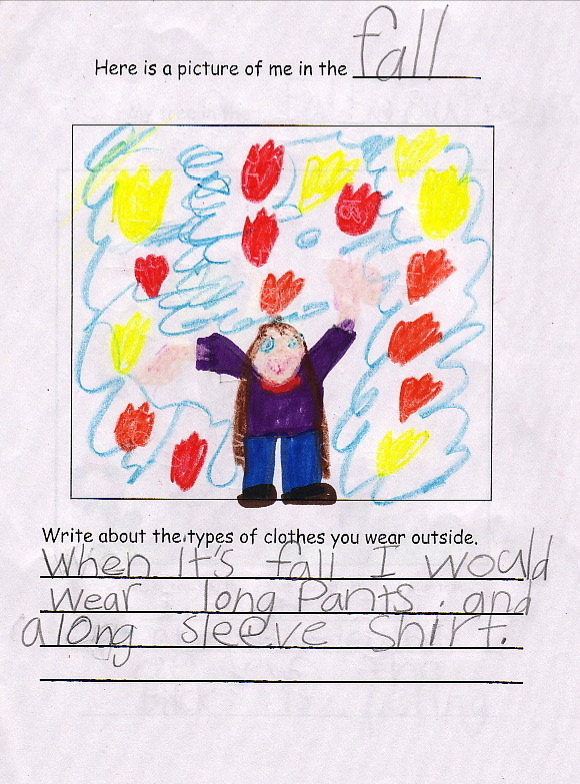 Here is a picture of me in the fall
Write about the types of clothes you wear outside.
When it's fall I would
wear long Pants. and
a long sleeve shirt.